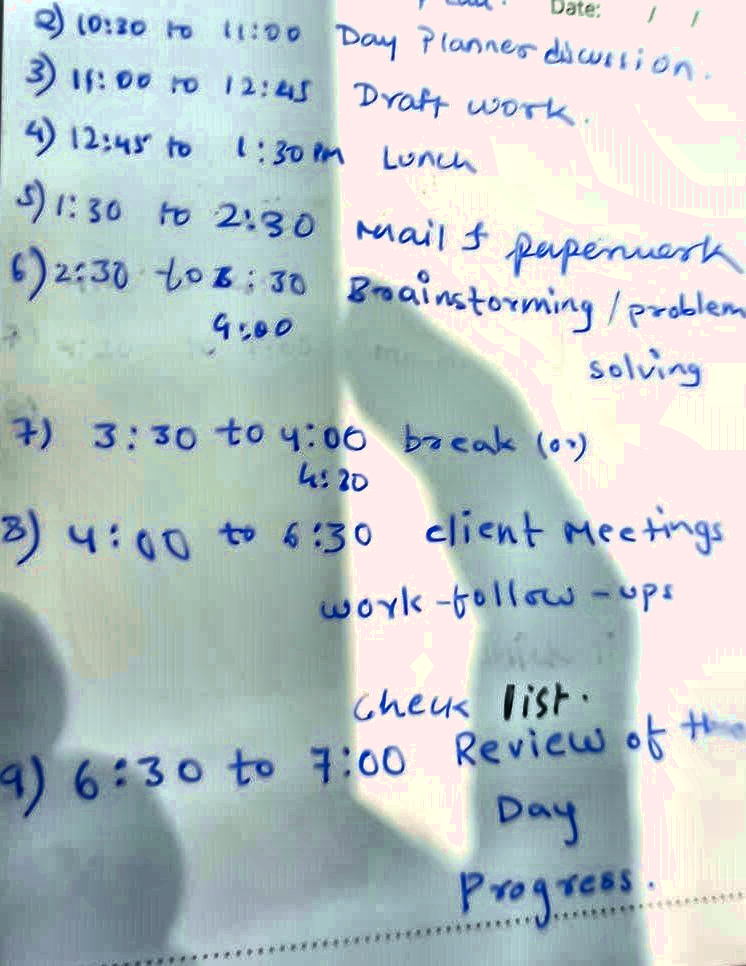 Date: / /
2) 10:30 to 11:00 Day Planner discussion.
3) 11:00 to 12:45 Draft work.
4) 12:45 to 1:30 PM Lunch
5) 1:30 to 2:30 Mail & paperwork
6) 2:30 to 3:30 Brainstorming / problem
4:00
solving
7) 3:30 to 4:00 break (or)
4:30
8) 4:00 to 6:30 client Meetings
work-follow-ups
check list.
9) 6:30 to 7:00 Review of the
Day
Progress.